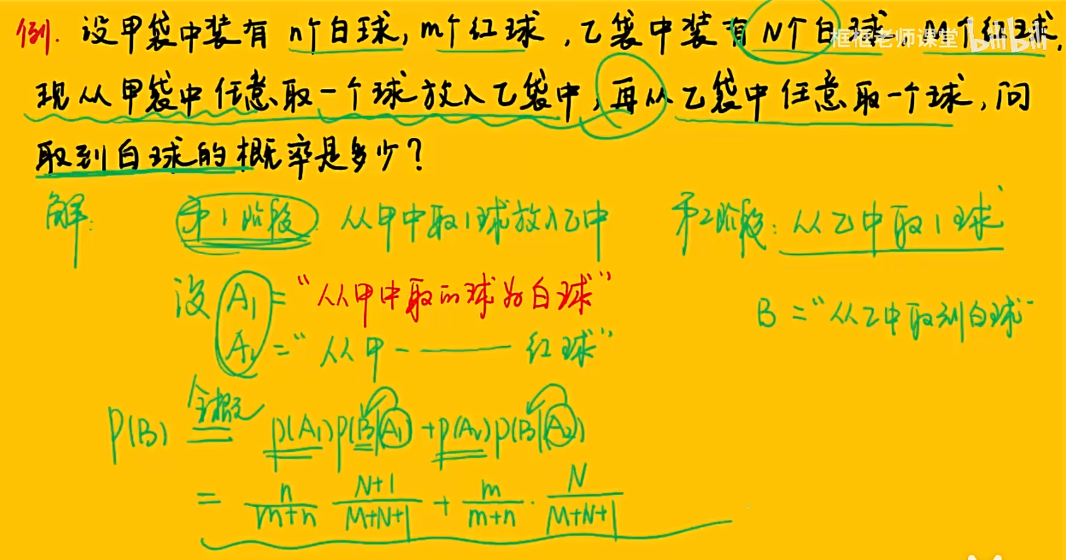 例. 设甲袋中装有 n个白球, m个红球, 乙袋中装有 N个白球, M个红球,
框框老师课堂 bilibili
现从甲袋中任意取一个球放入乙袋中, 再从乙袋中任意取一个球, 问
取到白球的概率是多少?
解: 第1阶段: 从甲中取1球放入乙中 第2阶段: 从乙中取1球
设 A₁ = "从甲中取的球为白球"
B = "从乙中取到白球"
A₂ = "从甲 - —— 红球"
P(B) 全概 = P(A₁)P(B|A₁) + P(A₂)P(B|A₂)
= n/(m+n) (N+1)/(M+N+1) + m/(m+n) · N/(M+N+1)